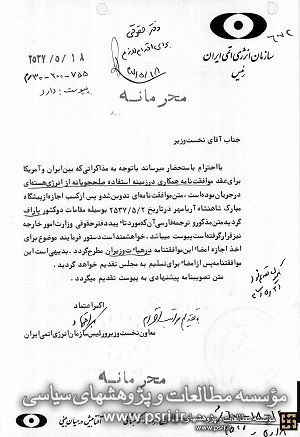 دفتر حقوقی
برای اقدام لازم
سازمان انرژی اتمی ایران
رئیس
۲۵۳۷/۵/۱۸
۳۰-۲۰۰-۷۵۵م
پیوست: دارد
محرمانه
جناب آقای نخست‌وزیر
با احترام باستحضار میرساند با توجه به مذاکراتی که بین ایران و آمریکا
برای عقد موافقت‌نامه همکاری در زمینه استفاده صلحجویانه از انرژی هسته‌ای
در جریان بوده است، متن موافقت‌نامه‌ای تدوین شد و پس از کسب اجازه از پیشگاه
مبارک شاهنشاه آریامهر در تاریخ ۲۵۳۷/۵/۲ بوسیله مقامات دو کشور پاراف
گردید متن مذکور و ترجمه فارسی آن که مورد تأیید دفتر حقوقی وزارت امور خارجه
نیز قرار گرفته است پیوست میباشد. خواهشمند است دستور فرمایند موضوع برای
اخذ اجازه امضاء این موافقتنامه در هیأت وزیران مطرح گردد. بدیهی است این
موافقتنامه پس از امضاء برای تسلیم به مجلس تقدیم خواهد گردید.
متن تصویبنامه پیشنهادی به پیوست تقدیم میگردد.
با تقدیم مراتب احترام
اکبر اعتماد
معاون نخست وزیر و رئیس سازمان انرژی اتمی ایران
محرمانه
موسسه مطالعات و پژوهشهای سیاسی
www.psri.ir